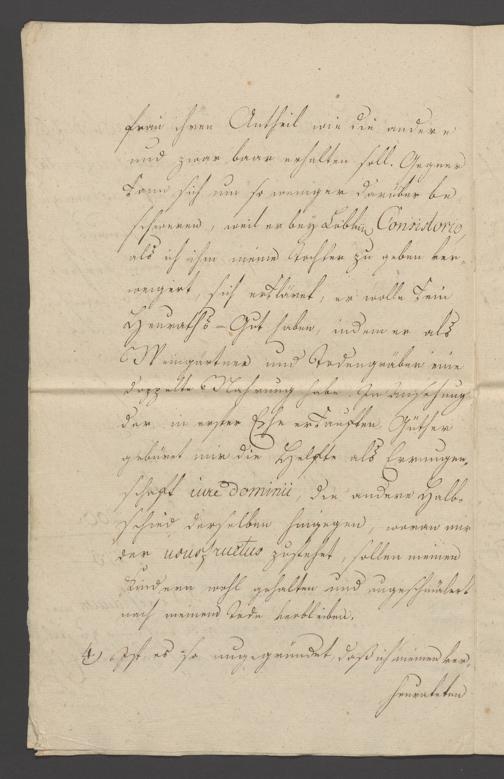 frau ihren Antheil wie die andere
und zwar baar erhalten soll. Gegner
kann sich um so weniger darüber be
schweren, weil er bey Löbln Consistorio,
als ich ihm meine Tochter zu geben ver-
weigert, sich erkläret, er wolle kein
Heuraths-Gut haben, indem er als
Weingärtner und Todengräber eine
doppelte Nahrung habe. In Ansehung
der in erster Ehe erkauften Güther
gebüret mir die Helfte als Errungen-
schaft iure dominii, die andere Halb-
schied derselben hingegen, woran mir
der ususfructus zustehet, sollen meinen
Kindern wohl gehalten und ungeschmälert
nach meinem Tode verbleiben.
4) Ist es so ungegründet, daß ich meinen ver-
heurateten